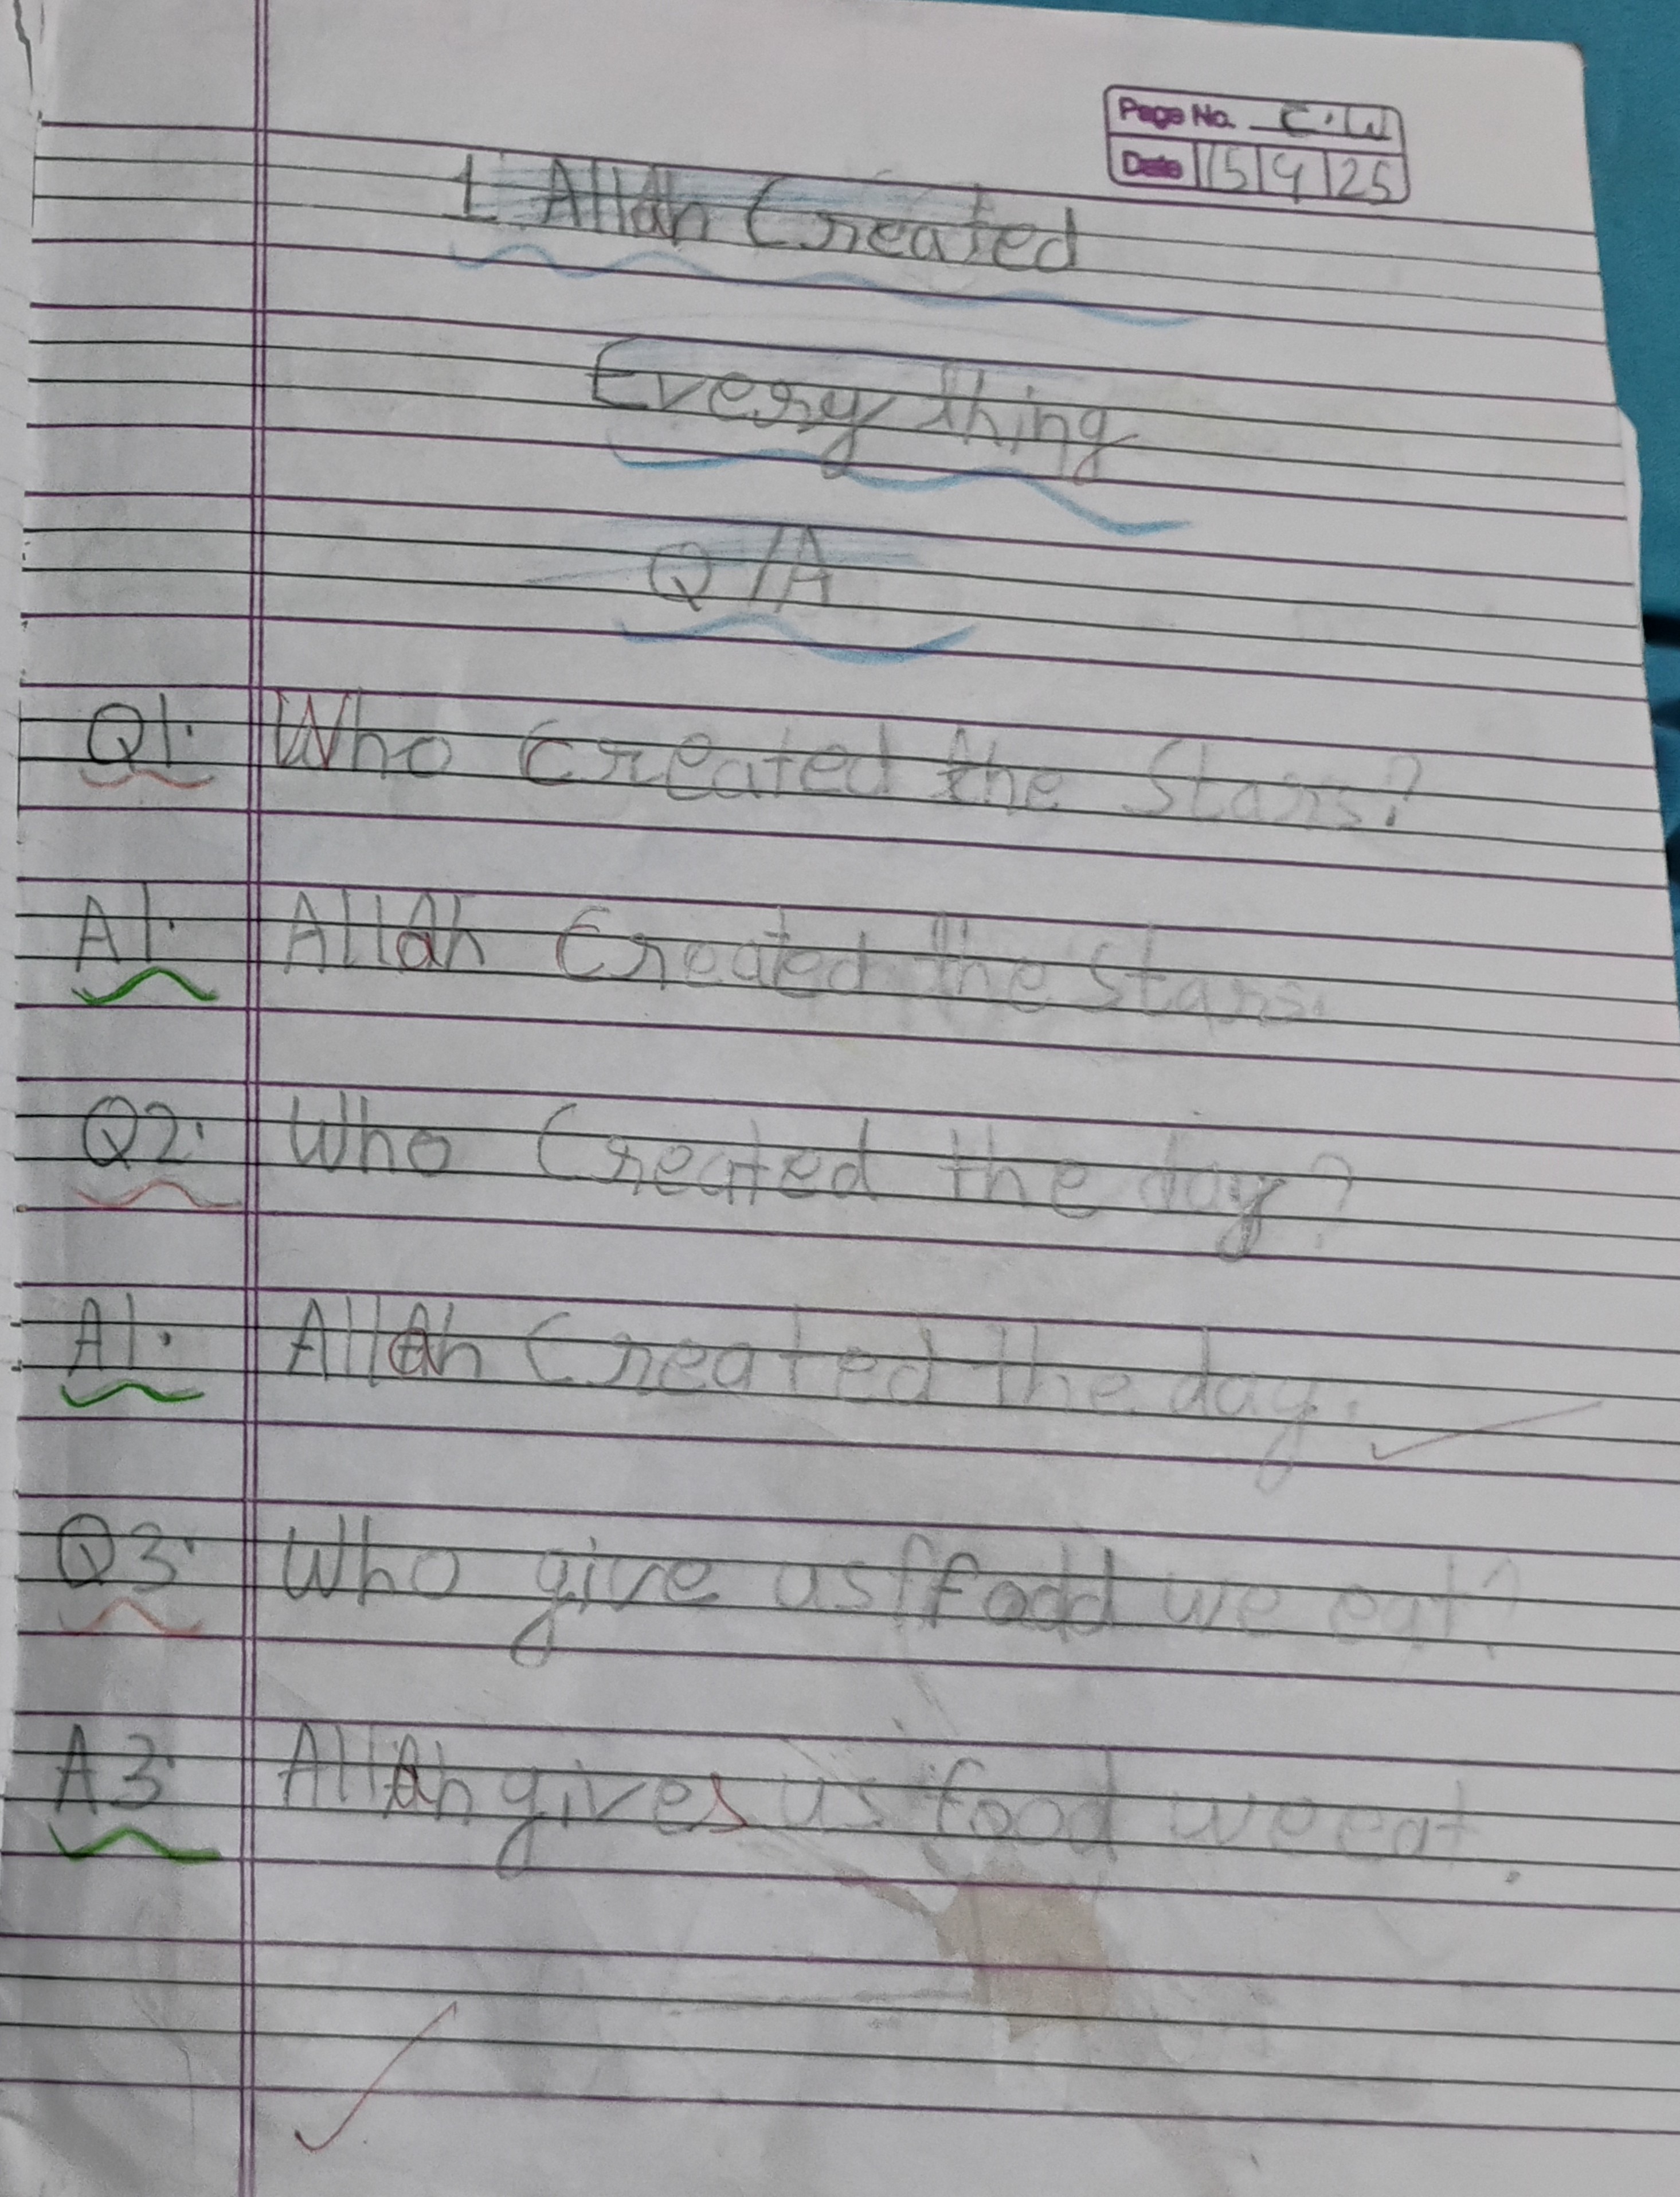 Page No. C.W
Date 15 9 25
1 Allah Created
Every thing
Q/A
Q1. Who Created the Stars?
A1. Allah Created the Stars.
Q2. Who Created the day?
A1. Allah Created the day.
Q3. Who give us food we eat?
A3. Allah gives us food we eat.